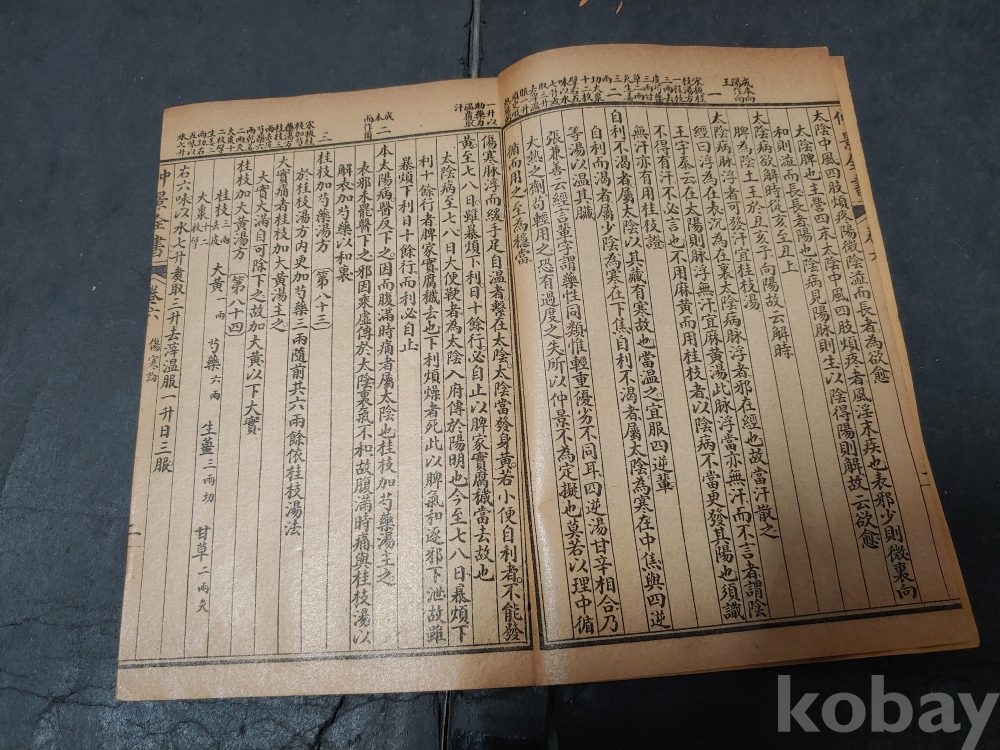 仲景全書
太陰中風四肢煩疼陽微陰濇而長者為欲愈
太陰脾也主營四末太陰中風四肢煩疼者風淫末疾也表邪少則微裏向
和則濇而長長者陽也陰病見陽脈則生以陰得陽則解故云欲愈
太陰病欲解時從亥至丑上
脾為陰土王於丑亥子向陽故云解時
太陰病脈浮者可發汗宜桂枝湯
經曰浮為在表沉為在裏太陰病脈浮者邪在經也故當汗散之
王宇泰云在太陽則脈浮無汗宜麻黃湯此脈浮當亦無汗而不言者謂陰
不得有汗不必言也不用麻黃而用桂枝者以陰病不當更發其陽也須識
無汗亦有用桂枝證
自利不渴者屬太陰以其藏有寒故也當溫之宜服四逆輩
自利而渴者屬少陰為寒在下焦自利不渴者屬太陰為寒在中焦與四逆
等湯以溫其臟
張兼善云經言輩字謂藥性同類惟輕重優劣不同耳四逆湯甘辛相合乃
大熱之劑苟輕用之恐有過度之失所以仲景不為定擬也莫若以理中循
循而用之至為穩當
傷寒脈浮而緩手足自溫者繫在太陰太陰當發身黃若小便自利者不能發
黃至七八日雖暴煩下利日十餘行必自止以脾家實腐穢當去故也
太陰病至七八日大便鞕者為太陰入府傳於陽明也今至七八日暴煩下
利十餘行者脾家實腐穢去也下利煩燥者死此以脾氣和逐邪下泄故雖
暴煩下利日十餘行而利必自止
本太陽病醫反下之因而腹滿時痛者屬太陰也桂枝加芍藥湯主之
表邪未罷醫下之邪因乘虛傳於太陰裏氣不和故腹滿時痛與桂枝湯以
解表加芍藥以和裏
桂枝加芍藥湯方 第八十三
於桂枝湯方內更加芍藥三兩隨前共六兩餘依桂枝湯法
大實痛者桂枝加大黃湯主之
大實大滿自可除下之故加大黃以下大實
桂枝加大黃湯方 第八十四
桂枝三兩去皮 大黃一兩 芍藥六兩 生薑三兩切 甘草二兩炙
大棗十二枚擘
右六味以水七升煑取三升去滓溫服一升日三服
仲景全書 卷六 傷寒論
一
成本向陽作向王
二
一升以助藥力溫覆取汗
二
成本而作因
三
kobay